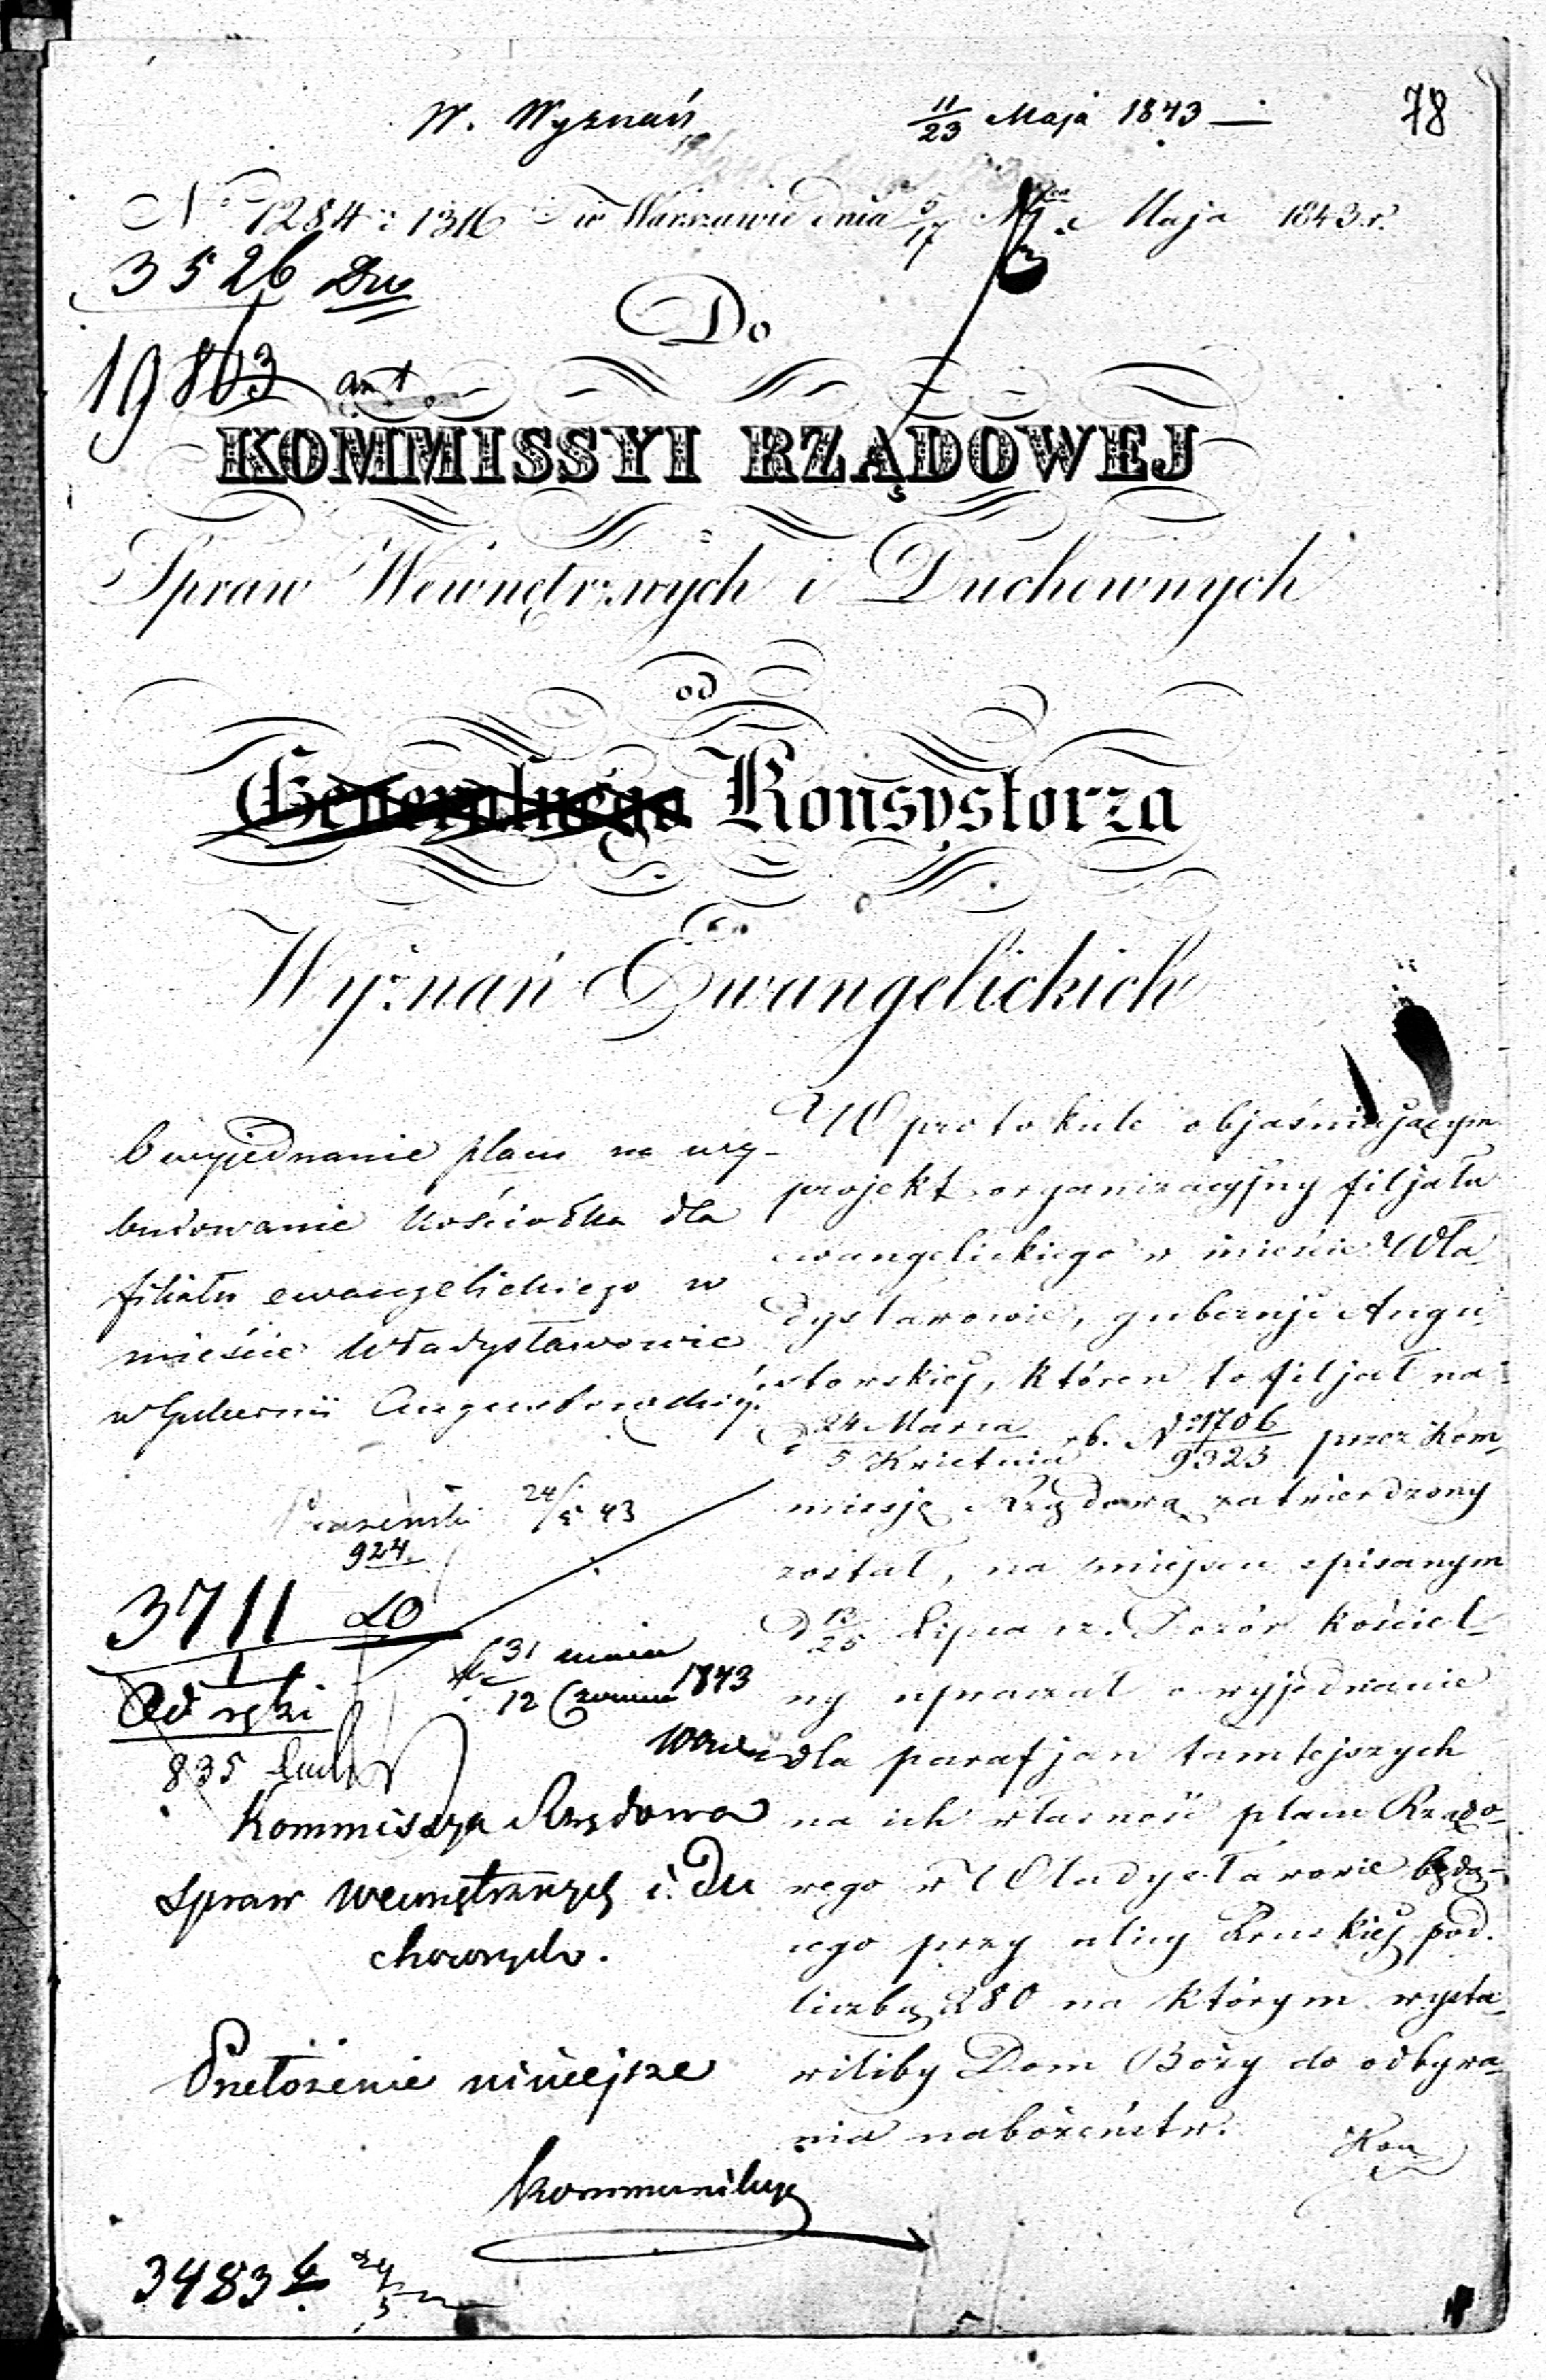 W. Wyznań 11/23 Maja 1843 — 78
No 1284:1316 w Warszawie dnia 5/17 Mca Maja 1843 r.
3526 Du
19803 ant.
Do
KOMMISSYI RZĄDOWEJ
Spraw Wewnętrznych i Duchownych
od
Generalnego Konsystorza
Wyznań Ewangelickich
O wyjednanie placu na wy-
budowanie Kościołka dla
filiału ewangelickiego w
mieście Władysławowie
w Gubernii Augustowskiej.
24/5 43
924
3711
31 maia
12 Czerwca 1843
835
Kommissya Rządowa
Spraw Wewnętrznych i Du
chownych.
Przełożenie niniejsze
kommunikuje
3483 24/5
W protokule objaśniającym
projekt organizacyjny filjału
ewangelickiego w mieście Wła
dysławowie, gubernji Augu
stowskiej, któren to filjał na
d 24 Marca / 5 Kwietnia rb. No 1706/9323 przez Kom
missję Rządową zatwierdzony
został, na miejscu spisanym
d 13/25 Lipca rz. Dozór kościel
ny upraszał o wyjednanie
dla parafjan tamtejszych
na ich własność placu Rządo-
wego w Władysławowie będą-
cego przy ulicy Pruskiej pod
liczbą 280 na którym wysta
wiliby Dom Boży do odbywa
nia nabożeństw.
Kon